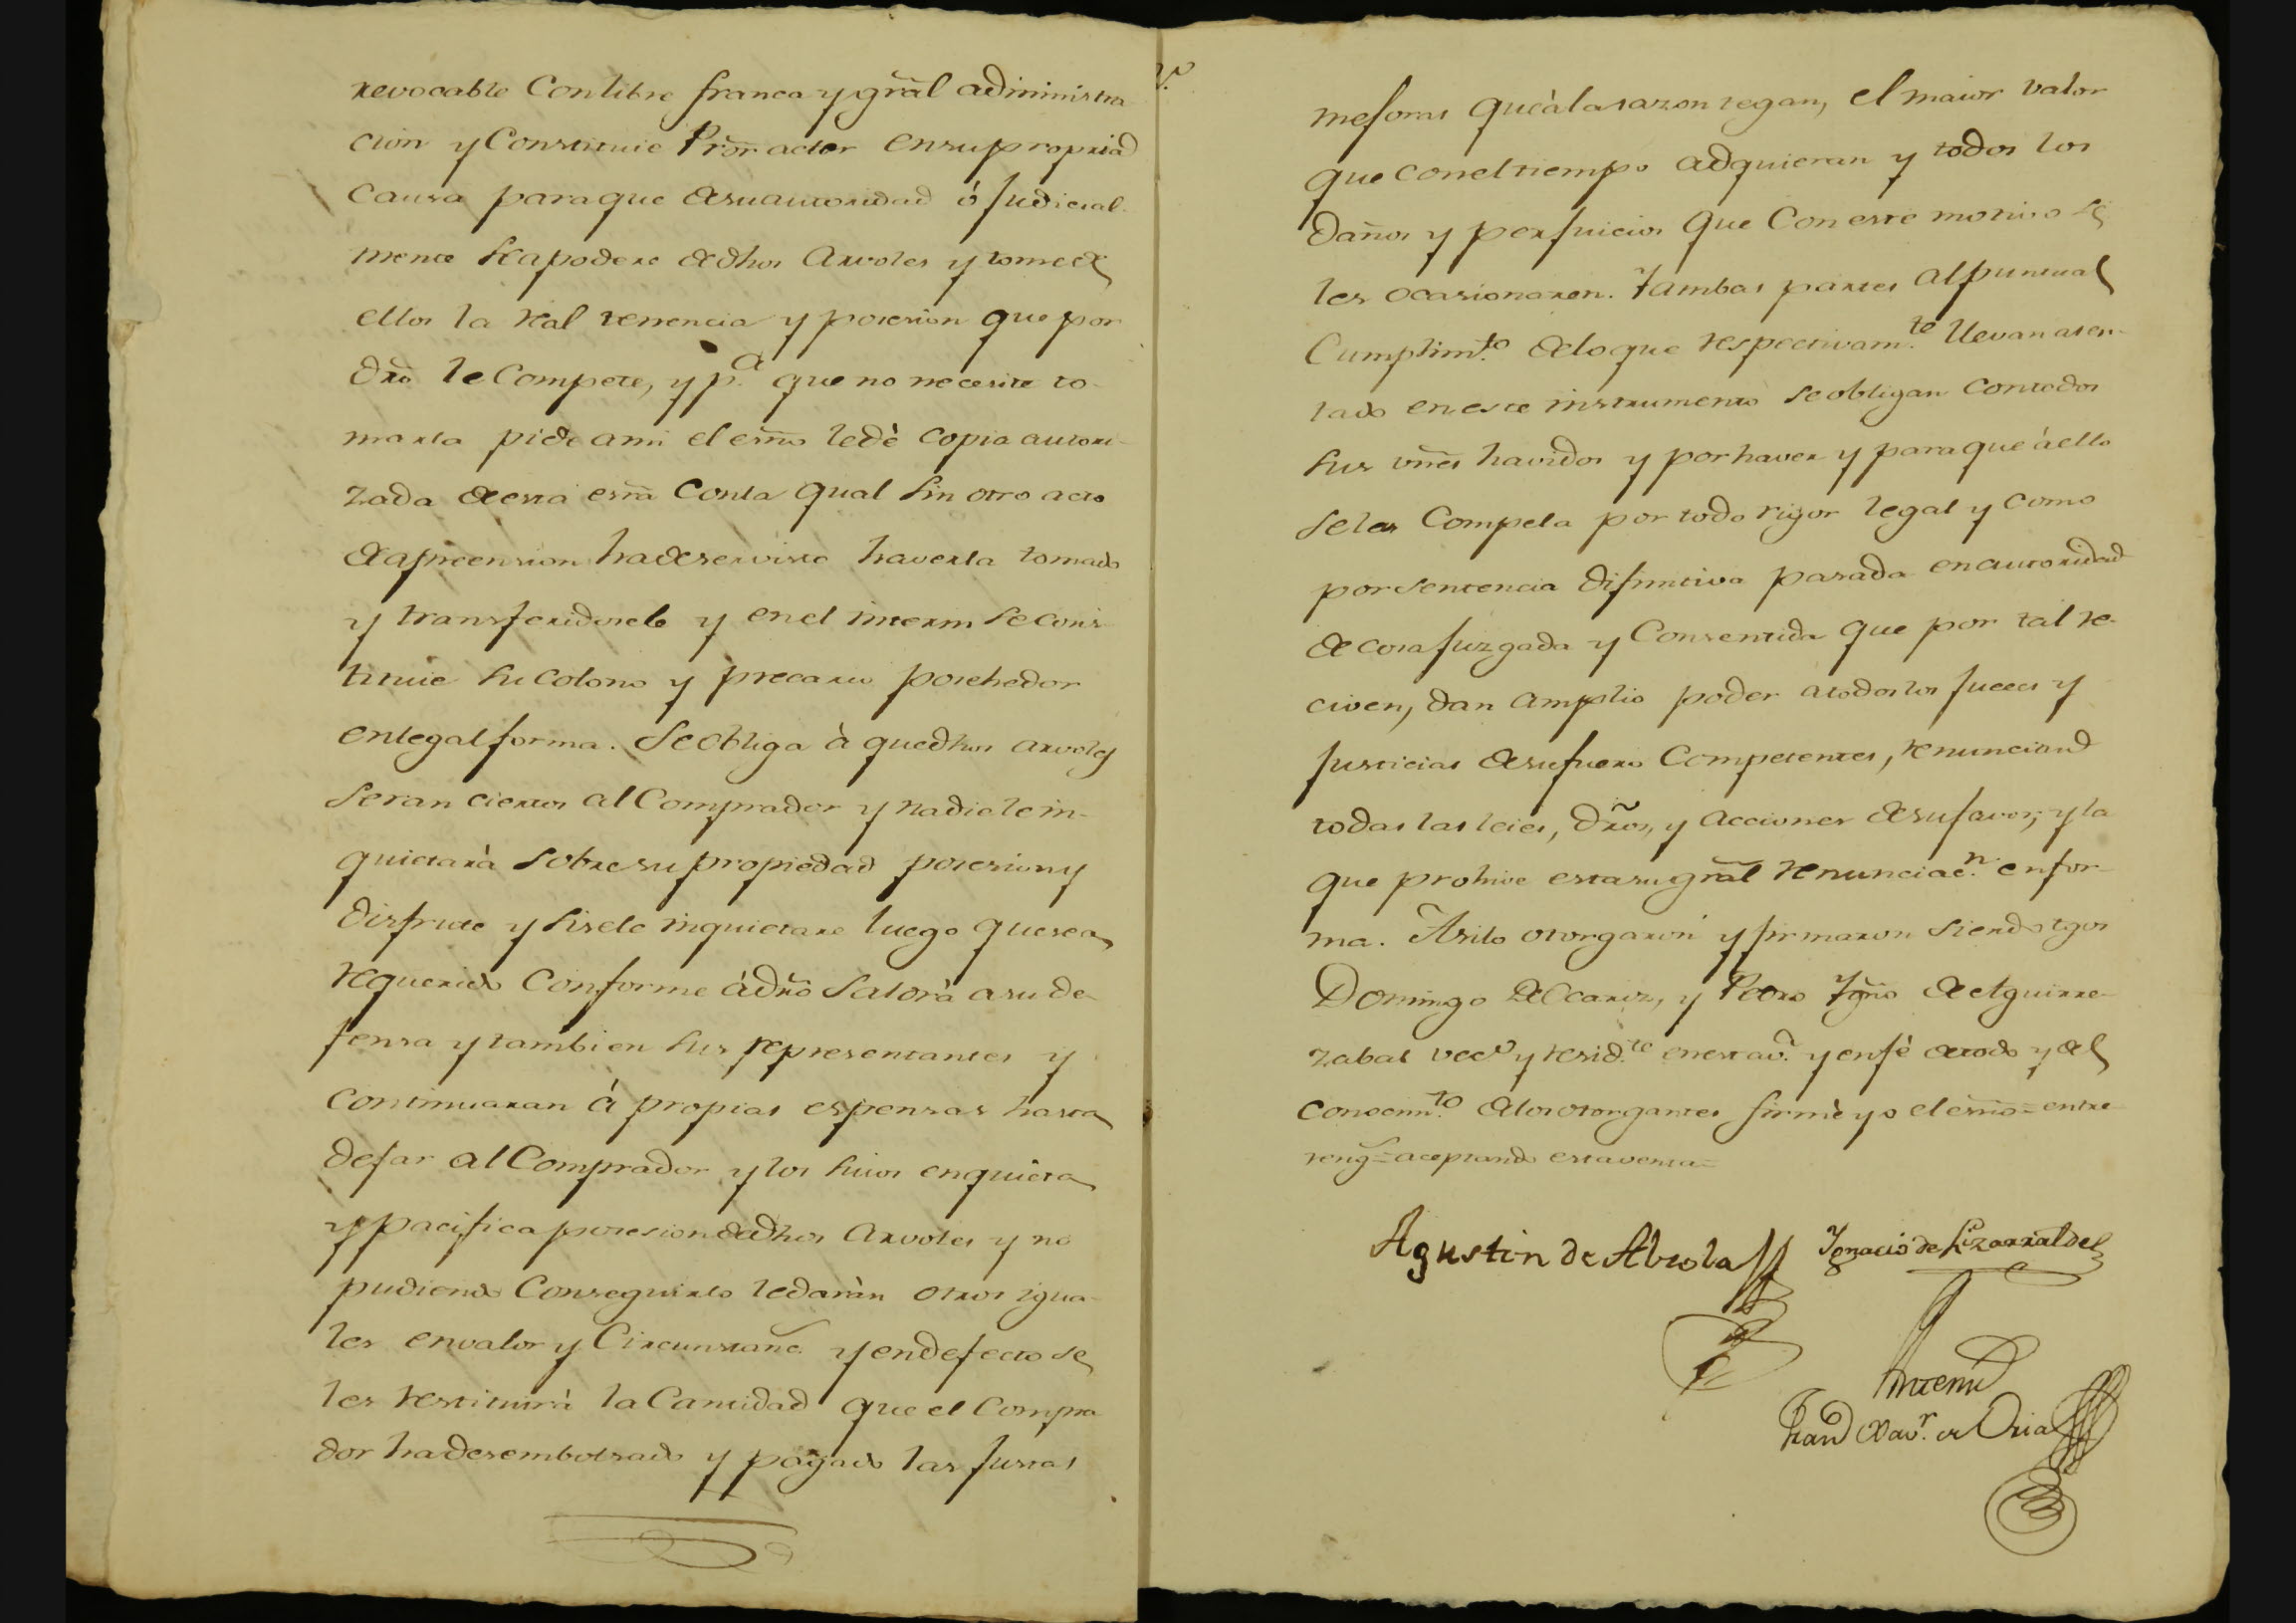 revocable Con libre franca y gral administra
cion y Constituie Pror actor en su propria
Causa para que de su autoridad ó Judicial
mente se apodere de dhos Arvoles y tome de
ellos la real tenencia y posesion que por
dro le Compete, y pª que no necesite to-
marla pide a mi el esno le dè copia autori-
zada de esta esra Con la qual sin otro acto
de apreension ha de ser visto haverla tomado
y transferidosele y en el interin se cons-
tituie su Colono y precario posehedor
en legal forma. Se obliga à que dhos arvoles
seran ciertos al Comprador y nadie le in-
quietarà sobre su propiedad posesion y
disfrute y si se le inquietare luego que sea
requerido Conforme à dro Saldrà a su de-
fensa y tambien sus representantes y
Continuaran à propias espensas hasta
dejar al Comprador y los suios en quieta
y pacifica posesion de dhos Arvoles y no
pudiendo Conseguirlo le daràn otros igua-
les en valor y Circunstanc. y en defecto se
les restituirà la Cantidad que el Compra
dor ha desembolsado y pagado las justas
mejoras que à la sazon tegan, el maior valor
que con el tiempo adquieran y todos los
daños y perjuicios que Con este motivo se
les ocasionaren. Y ambas partes al puntual
Cumplimto de lo que respectivamte llevan asen-
tado en este instrumento se obligan Con todos
sus vnes havidos y por haver y para que à ello
se les Compela por todo rigor legal y como
por sentencia difinitiva pasada en autoridad
de cosa juzgada y Consentida que por tal re-
civen, dan amplio poder a todos los Jueces y
Justicias de su fuero Competentes, renunciand
todas las leies, dros, y acciones de su favor, y la
que prohive esta su gral renunciacn en for-
ma. Asi lo otorgaron y firmaron siendo tgos
Domingo de Ocariz, y Pedro Ygno de Aguirre-
zabal veco y residte en esta va y en fè de todo y del
conocimto de los otorgantes firmè yo el esno = entre
reng = aceptando esta venta =
Agustin de Abrola Ygnacio de Lizarralde
Ante mi
Frano Xavr de Oria